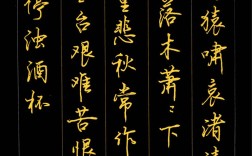 猿啸哀渚清
落木萧々下
里悲秋常作
台艰难苦恨
停浊酒杯